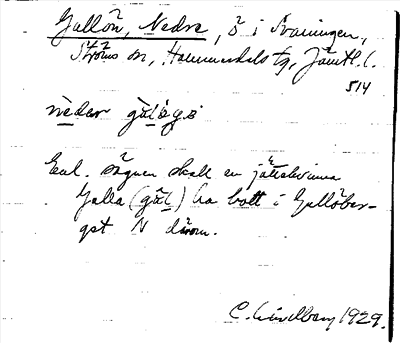 Gallön, Nedre, ö i Svaningen,
Ströms sn, Hammerdals tg, Jämtl. l.
514
nèdar gàlöyö
Enl. sägnen skall en jättekvinna
Galla (gàl) ha bott i Gallöber-
get N därom.
C. Lindberg 1929.